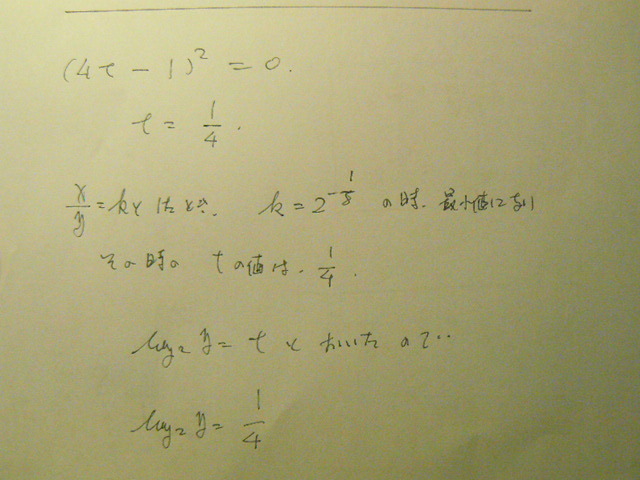 (4t - 1)² = 0.
t = 1/4.
x/y = kとしたとき、 k = 2^{-1/8} の時、最小値になり
その時の tの値は、 1/4.
log₂ y = t と おいたので‥
log₂ y = 1/4